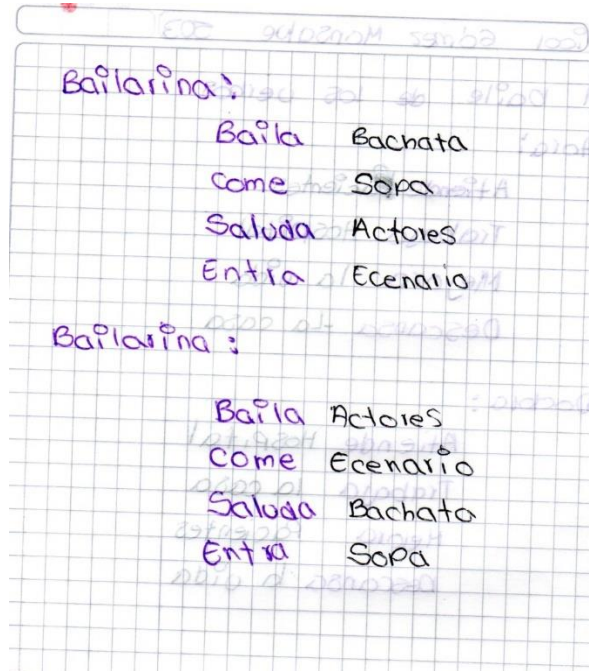 Bailarina:
Baila Bachata
Come Sopa
Saluda Actores
Entra Ecenario
Bailarina:
Baila Actores
Come Ecenario
Saluda Bachata
Entra Sopa